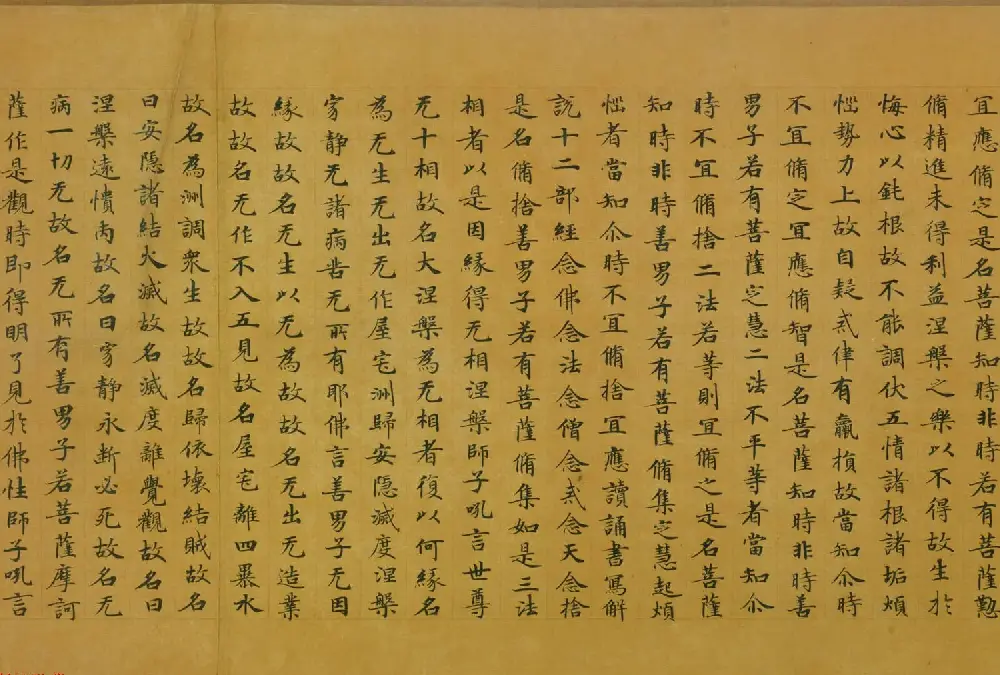 宜應脩㝎是名菩薩知時非時若有菩薩懃
脩精進未得利益涅槃之樂以不得故生於
悔心以鈍根故不能調伏五情諸根諸垢煩
惱勢力上故自疑戒律有羸損故當知尒時
不宜脩㝎宜應脩智是名菩薩知時非時善
男子若有菩薩㝎慧二法不平等者當知尒
時不宜脩捨二法若等則宜脩之是名菩薩
知時非時善男子若有菩薩脩集㝎慧起煩
惱者當知尒時不宜脩捨宜應讀誦書寫解
說十二部經念佛念法念僧念戒念天念捨
是名脩捨善男子若有菩薩脩集如是三法
相者以是因緣得无相涅槃師子吼言世尊
无十相故名大涅槃為无相者復以何緣名
為无生无出无作屋宅洲歸安隱滅度涅槃
穸静无諸病苦无所有耶佛言善男子无因
緣故故名无生以无為故故名无出无造業
故故名无作不入五見故名屋宅離四暴水
故名為洲調衆生故故名歸依壞結賊故名
曰安隱諸結火滅故名滅度離覺觀故名曰
涅槃遠憒丙故名曰穸静永断必死故名无
病一切无故名无所有善男子若菩薩摩訶
薩作是觀時即得明了見於佛性師子吼言